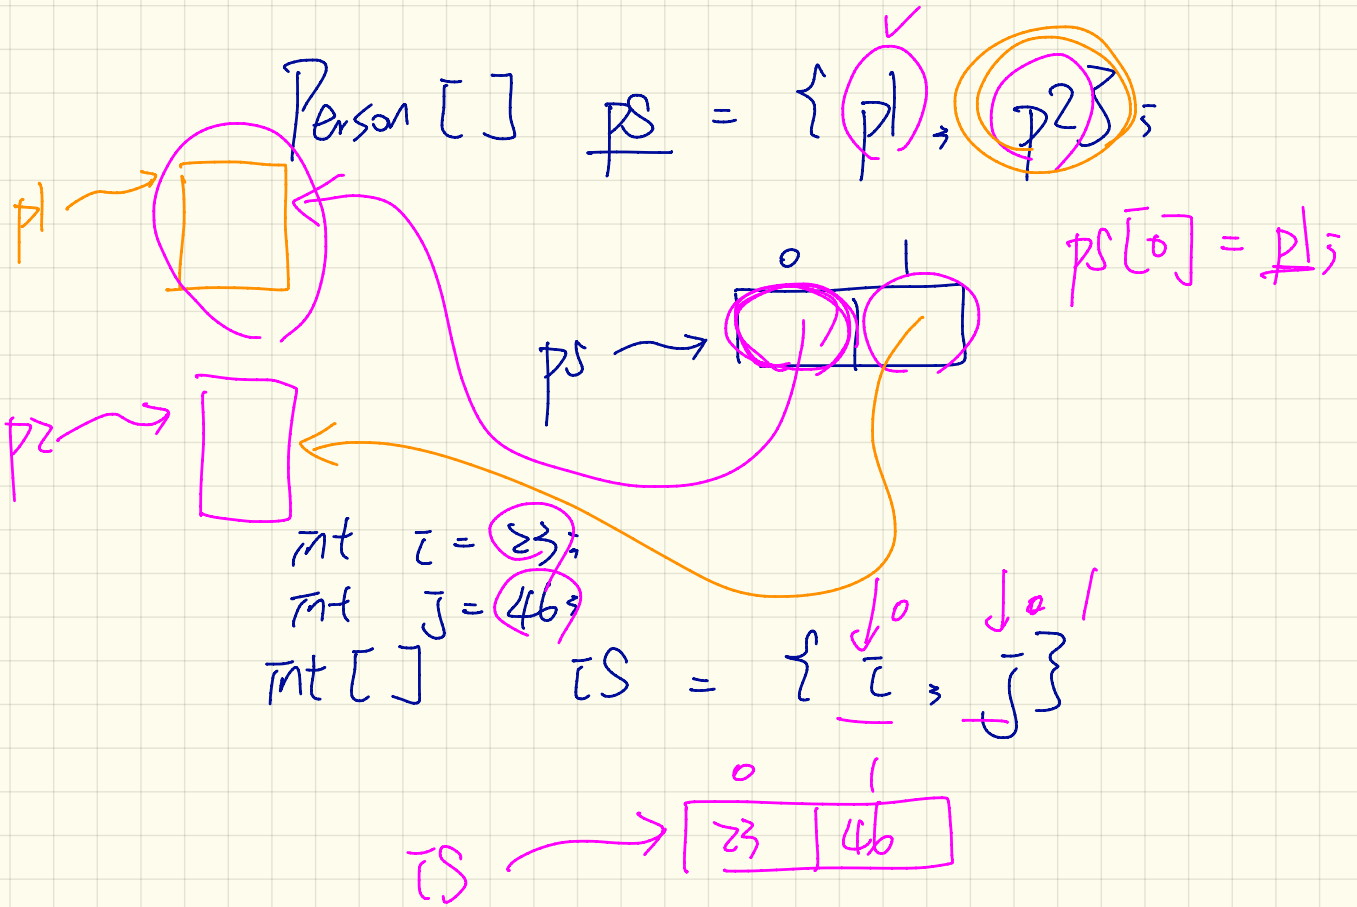 Person [ ] ps = { p1, p2};
p1
ps[0] = p1;
0 1
ps
p2
int i = 23;
int j = 46;
0 0 1
int [ ] is = { i, j}
0 1
is 23 46